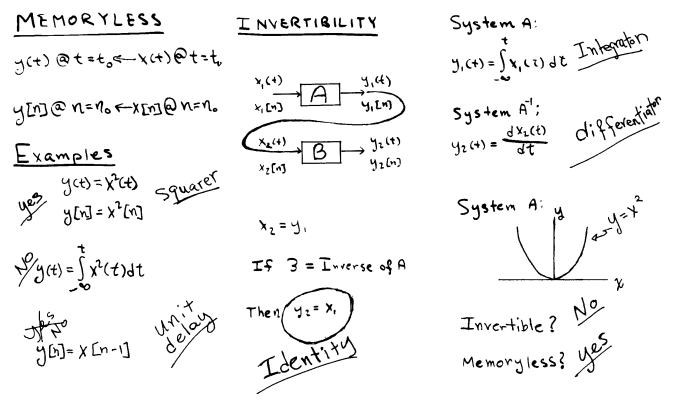 MEMORYLESS
y(t) @ t=t₀ ← x(t) @ t=t₀
y[n] @ n=n₀ ← x[n] @ n=n₀
Examples
yes
y(t) = x²(t)
y[n] = x²[n]
Squarer
NO
y(t) = ∫_{-∞}^{t} x²(τ)dτ
yes
No
y[n] = x[n-1]
Unit
delay
INVERTIBILITY
x₁(t)
x₁[n]
A
y₁(t)
y₁[n]
x₂(t)
x₂[n]
B
y₂(t)
y₂[n]
x₂ = y₁
If B = Inverse of A
Then y₂ = x₁
Identity
System A:
y₁(t) = ∫_{-∞}^{t} x₁(τ) dτ
Integrator
System A⁻¹:
y₂(t) = dx₂(t)/dt
differentiator
System A:
y
y = x²
x
Invertible? No
Memoryless? yes